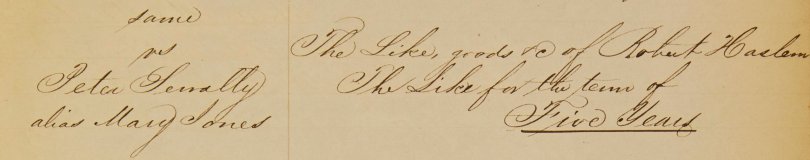 same
vs
Peter Sewally
alias Mary Jones
The Like, goods &c of Robert Haslem
The Like for the term of
Five Years